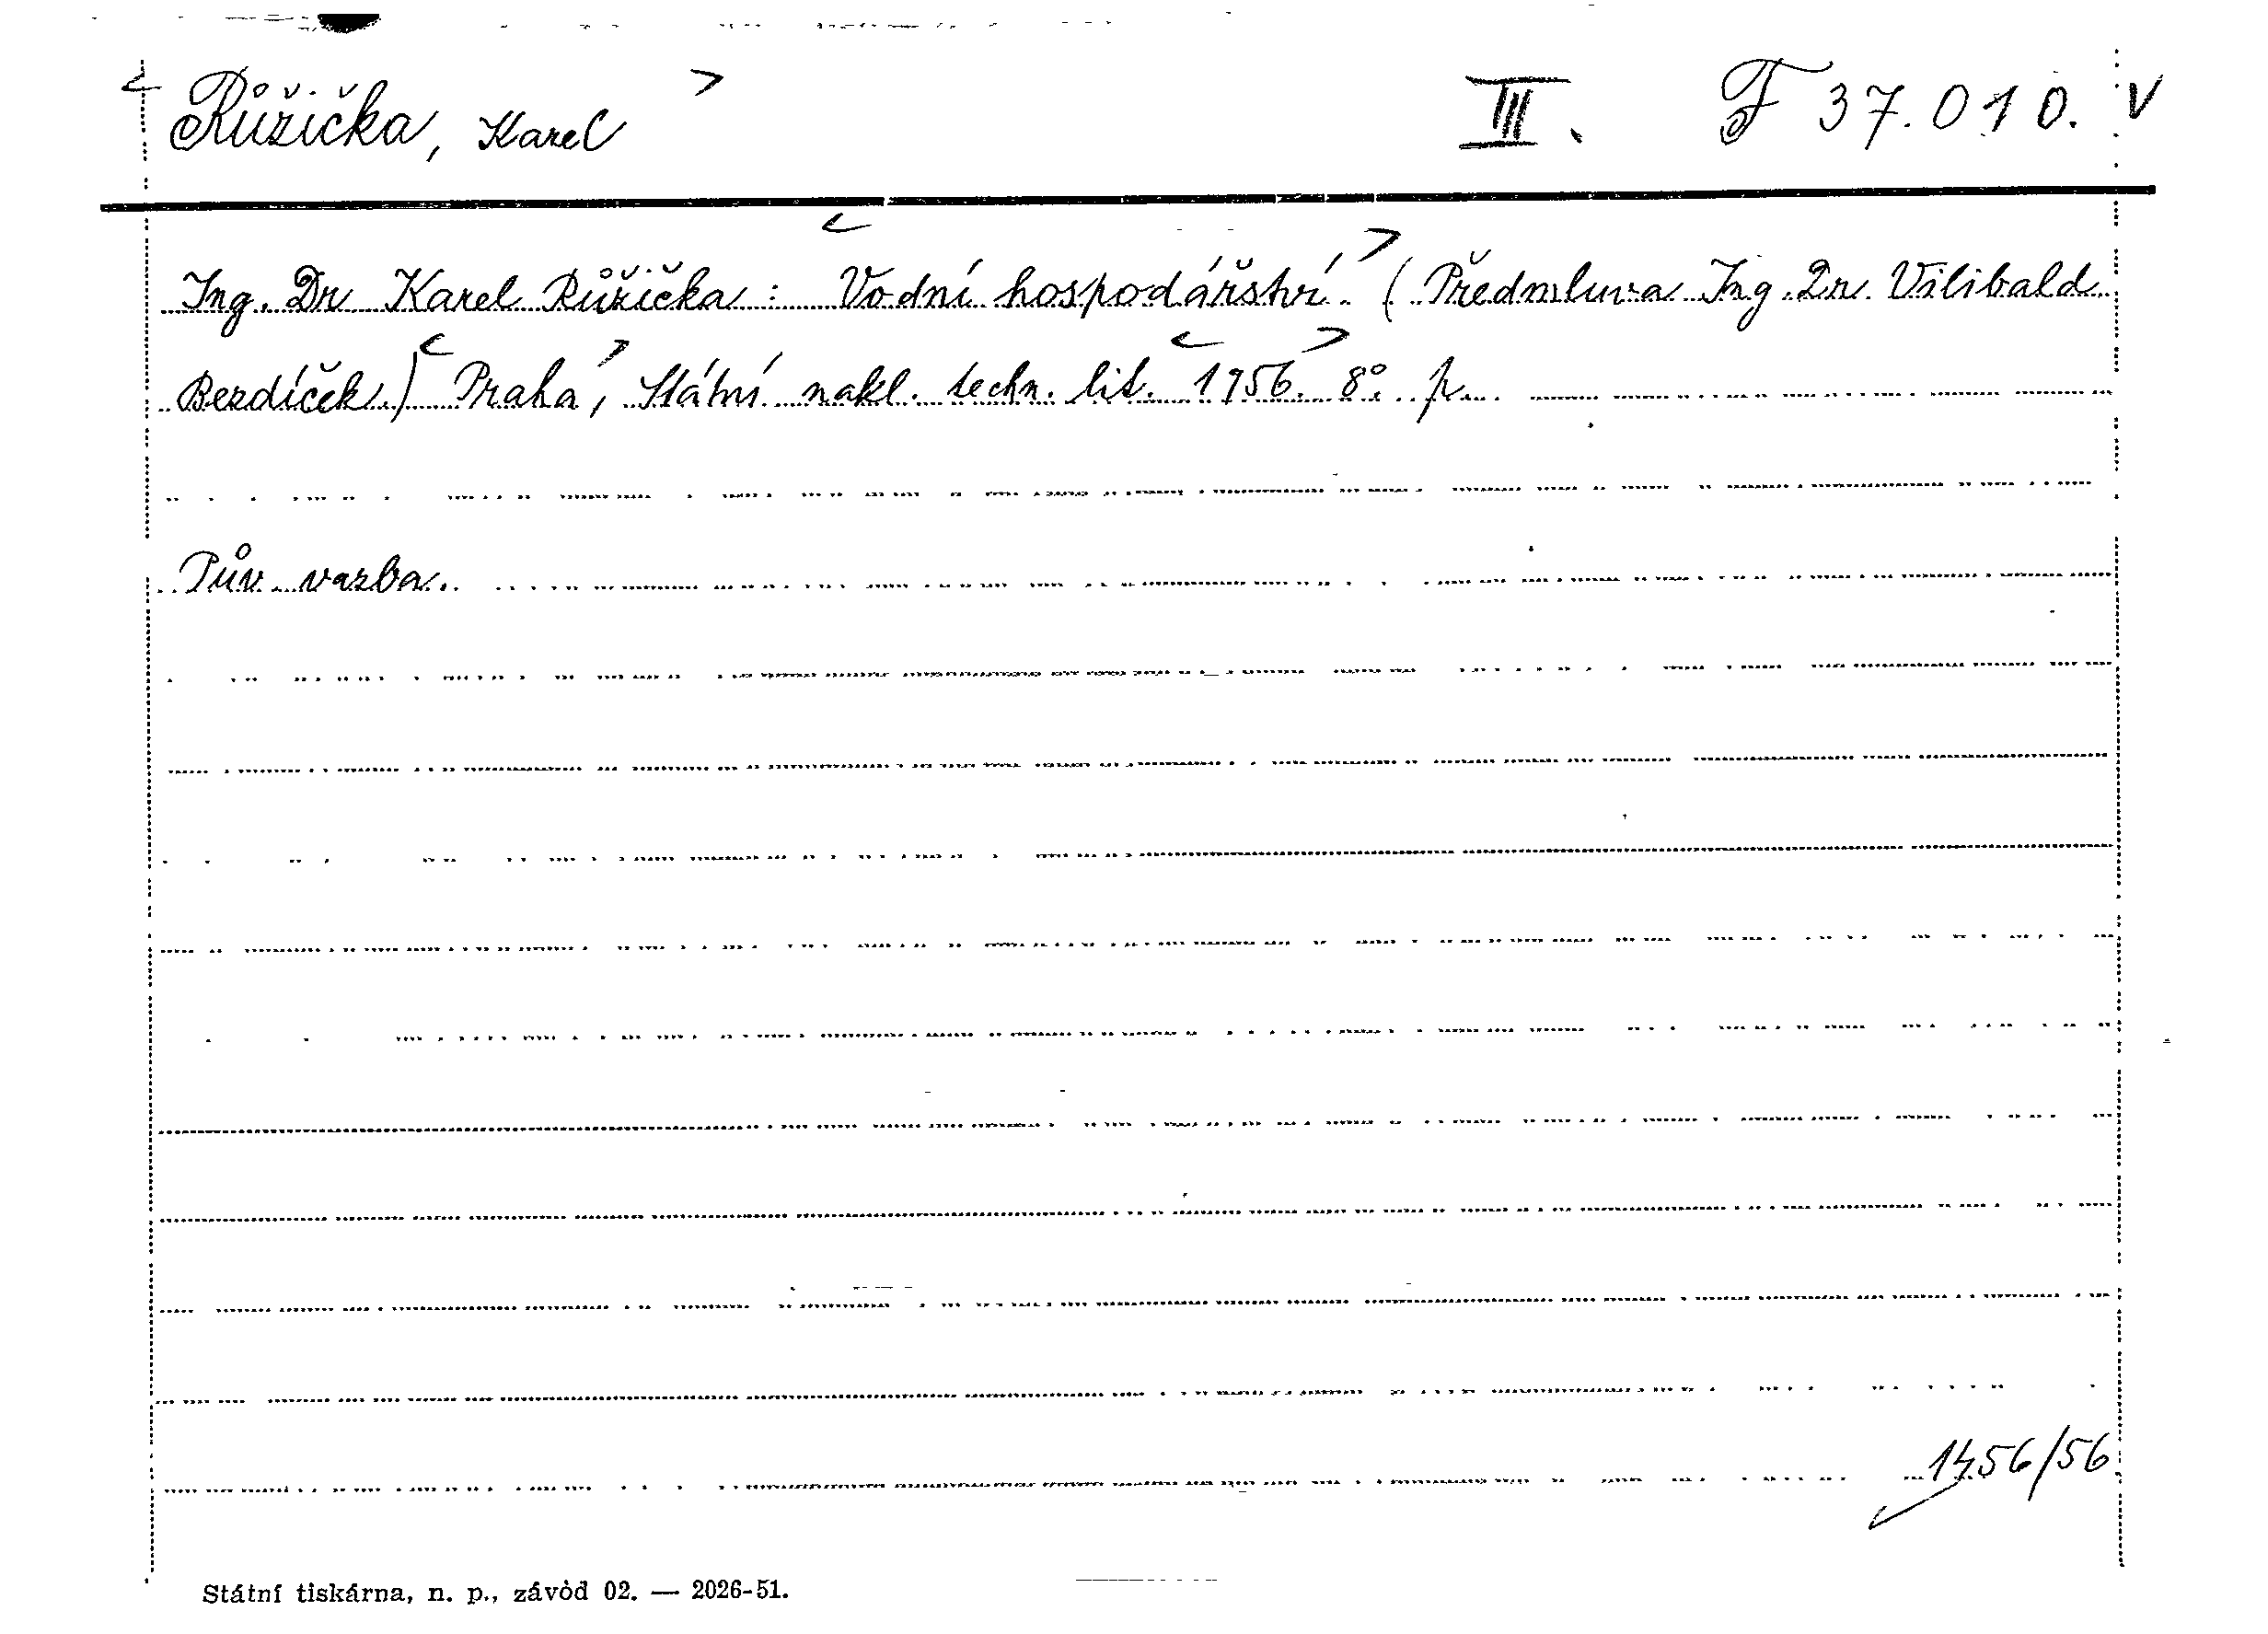 < Růžička, Karel > III. F 37.010. v
Ing. Dr Karel Růžička: <Vodní hospodářství.> (Předmluva Ing. Dr. Vilibald
Bezdíček.) <Praha>, Státní nakl. techn. lit. <1956.> 8°. p.
Pův. vazba.
1456/56
Státní tiskárna, n. p., závod 02. — 2026-51.